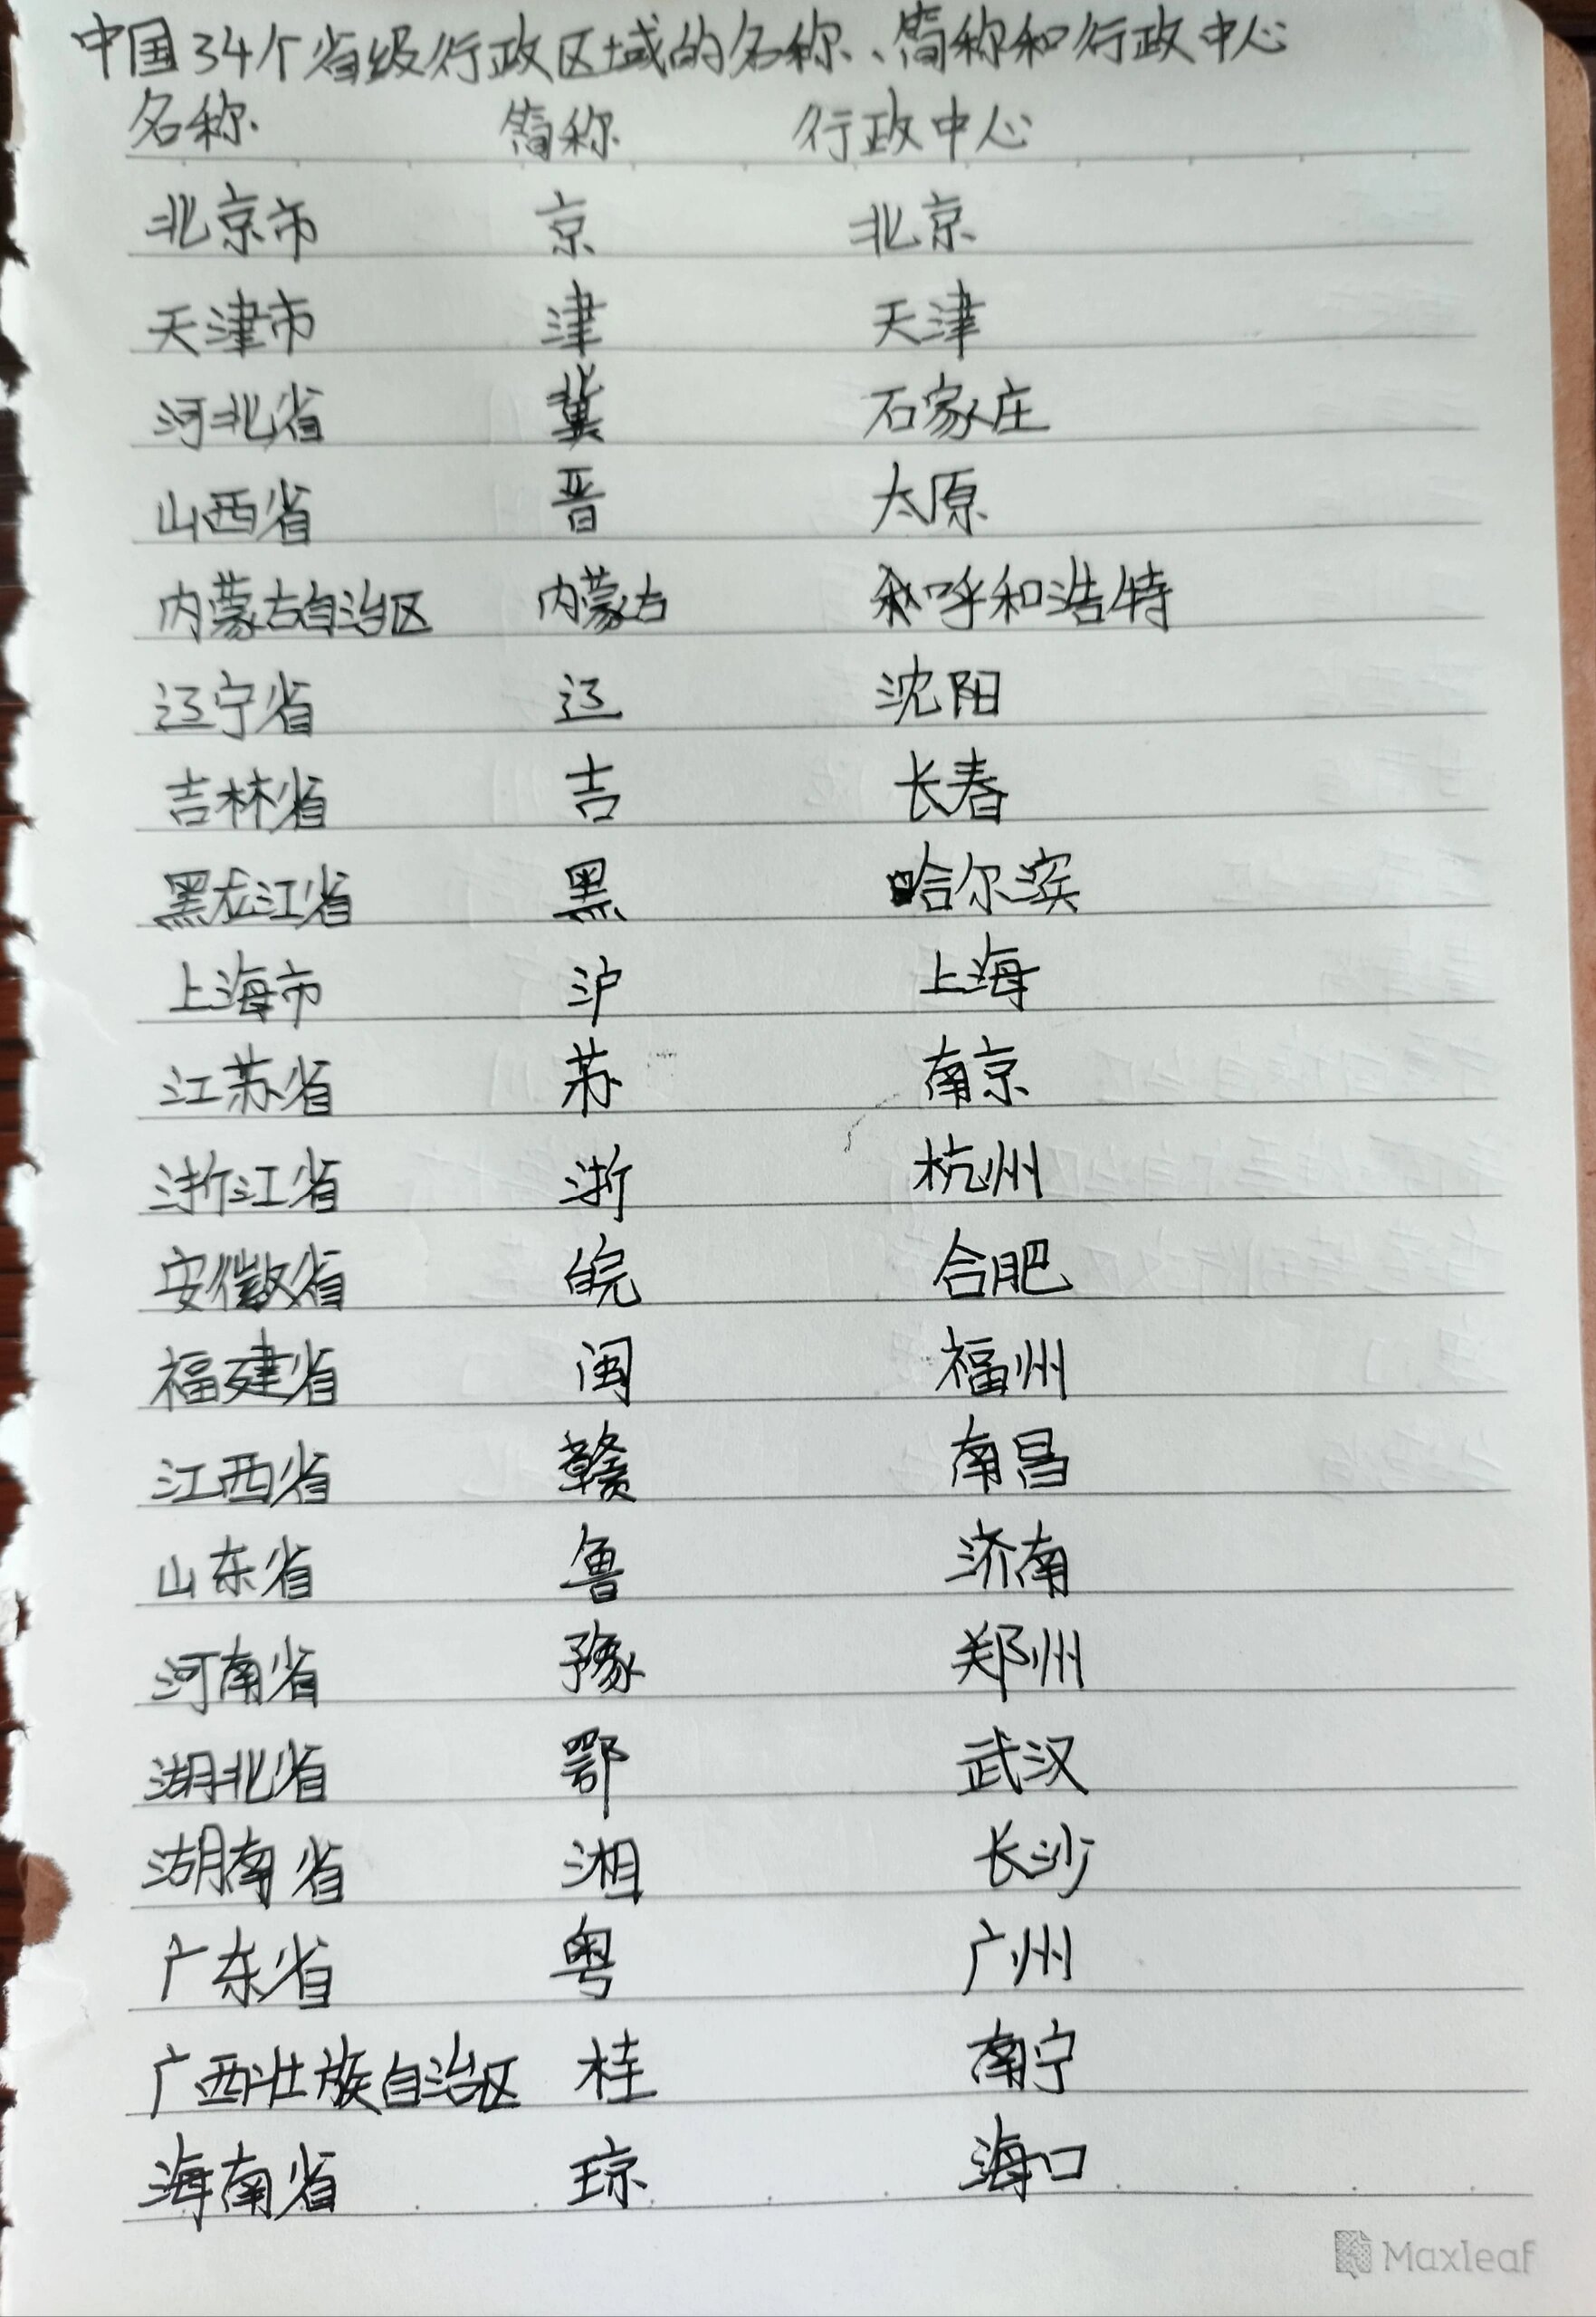 中国34个省级行政区域的名称、简称和行政中心
名称 简称 行政中心
北京市 京 北京
天津市 津 天津
河北省 冀 石家庄
山西省 晋 太原
内蒙古自治区 内蒙古 呼和浩特
辽宁省 辽 沈阳
吉林省 吉 长春
黑龙江省 黑 哈尔滨
上海市 沪 上海
江苏省 苏 南京
浙江省 浙 杭州
安徽省 皖 合肥
福建省 闽 福州
江西省 赣 南昌
山东省 鲁 济南
河南省 豫 郑州
湖北省 鄂 武汉
湖南省 湘 长沙
广东省 粤 广州
广西壮族自治区 桂 南宁
海南省 琼 海口
Maxleaf